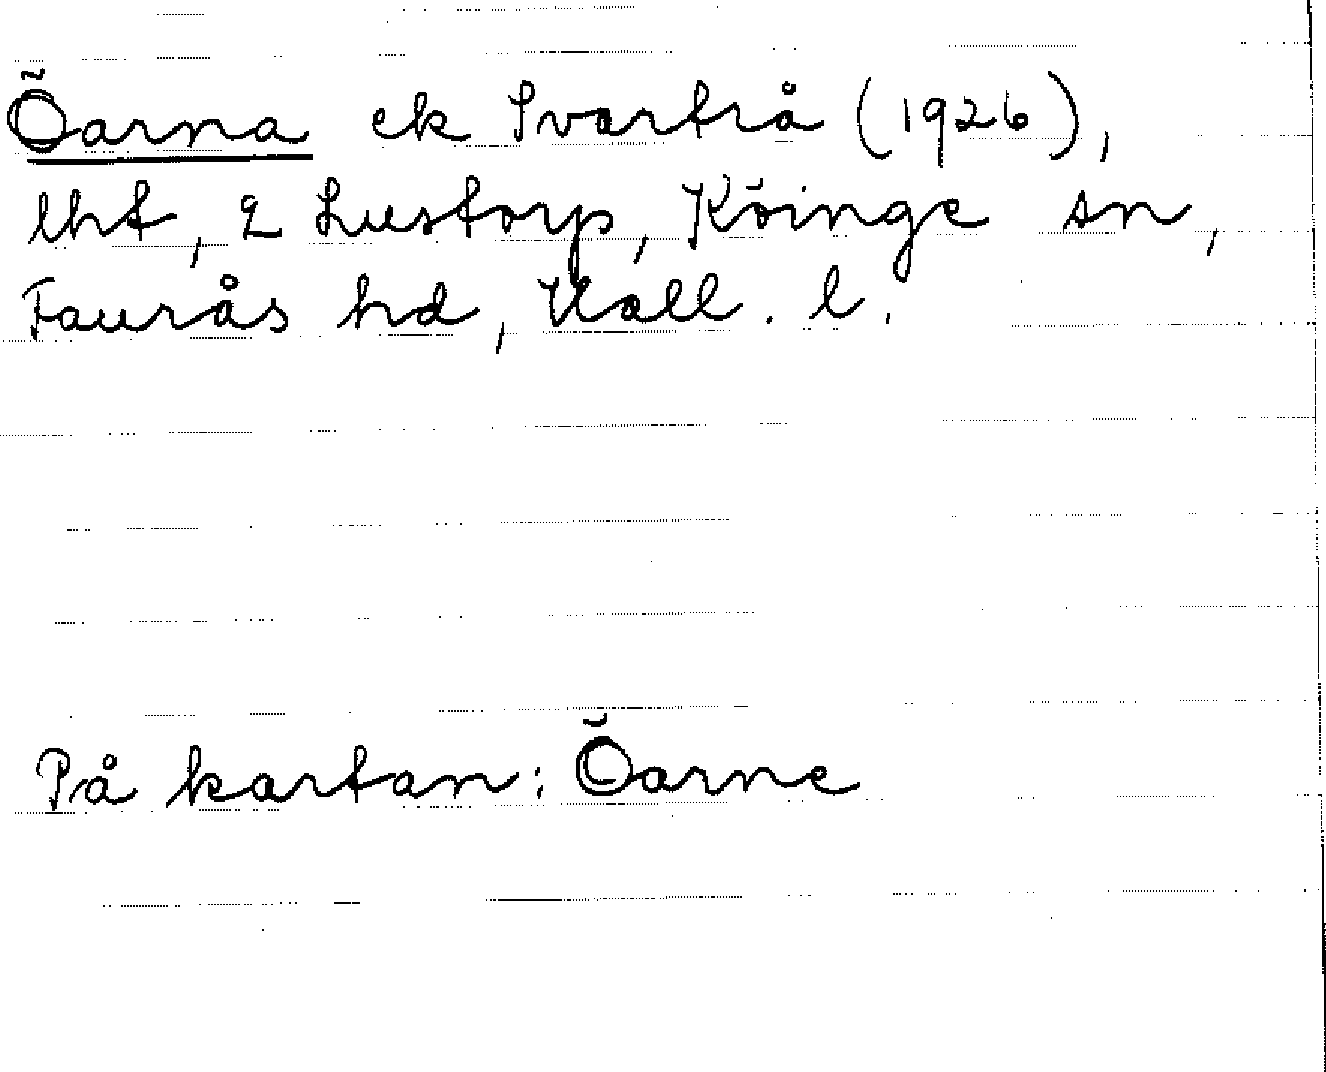 Öarna ek Svartrå (1926),
lht, 2 Lustorp, Köinge sn,
Faurås hd, Hall. l.
På kartan: Öarne